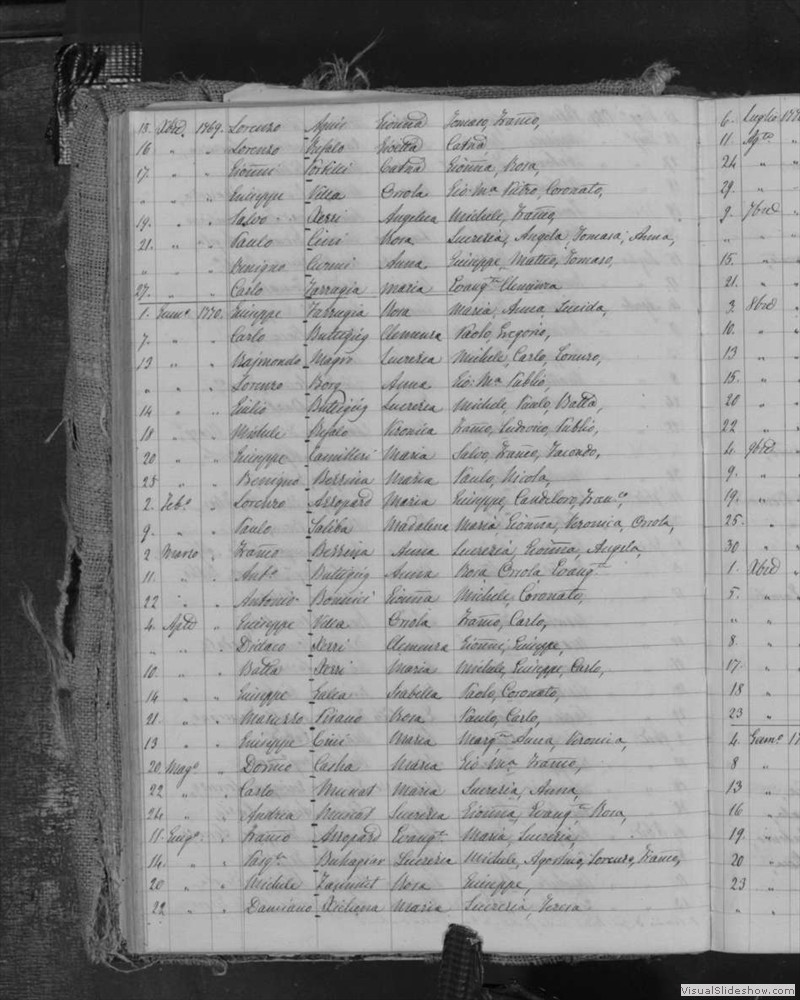 15. Xbre 1769. Lorenzo Apuis Gionna Tomaso, Franco,
16 " " Lorenzo Bufalo Evetta Catna
17. " " Gionni Portelli Catna Gionna, Rosa,
" " " Giuseppe Vella Orsola Gio: Ma Pietro, Coronato,
19. " " Salvo Xerri Angelica Michele, Franco,
21. " " Paulo Cini Rosa Lucrezia, Angela, Tomasa, Anna,
" " " Benigno Curmi Anna Giuseppe, Matteo, Tomaso,
27. " " Carlo Farrugia Maria Evangta Clemenza
1. Genno. 1770. Giuseppe Farrugia Rosa Maria, Anna, Lucida,
7. " " Carlo Buttigieg Clemenza Paolo, Gregorio,
13 " " Rajmondo Magro Lucrezia Michele, Carlo, Lonzo,
" " " Lorenzo Borg Anna Gio: Ma Publio,
14 " " Giulio Buttigieg Lucrezia Michele, Paulo, Batta,
18 " " Michele Bufalo Veronica Franco, Ludovico, Publio,
20 " " Giuseppe Camilleri Maria Salvo, Franco, Facondo,
25 " " Benigno Bezzina Maria Paulo, Nicola,
2. Febo. " Lorenzo Azzopard Maria Giuseppe, Candeloro, Franco,
9. " " Paulo Saliba Madalena Maria, Gionna, Veronica, Orsola,
2 Marzo " Franco Bezzina Anna Lucrezia, Gionna, Angela,
11. " " Anto. Buttigieg Anna Rosa Orsola, Evangta
22 " " Antonio Bonnici Gionna Michele, Coronato,
4. Aple " Giuseppe Vella Orsola Franco, Carlo,
" " " Didaco Xerri Clemenza Gionni, Giuseppe,
10. " " Batta Xerri Maria Michele, Giuseppe, Carlo,
14 " " Giuseppe Galea Isabella Paolo, Coronato,
21 " " Maruzzo Pisano Rosa Paulo, Carlo,
13 " " Giuseppe Cini Maria Margta Anna, Veronica,
20 Mago. " Domco Casha Maria Gio: Ma, Franco,
22 " " Carlo Muscat Maria Lucrezia, Anna,
24 " " Andrea Muscat Lucrezia Gionna, Evangta Rosa,
11. Giugo. " Franco Azzopard Evangta Maria, Lucrezia,
14. " " Pasqle Buhagiar Lucrezia Michele, Agostino, Lorenzo, Franco,
20 " " Michele Zammit Rosa Giuseppe,
22 " " Damiano Xiclona Maria Lucrezia, Teresa
6. Luglio 177
11. Agto. "
24 " "
29. " "
9. 7bre "
" "
15. "
21. "
3. 8bre "
10. "
13 "
15. "
20 "
22 "
4. 9bre "
9. "
19. "
25. "
30 "
1. Xbre "
5. "
" "
8. "
17. "
18 "
23 "
4. Genno. 17
8 "
13 "
16 "
19. "
20 "
23 "
" "
VisualSlideshow.com